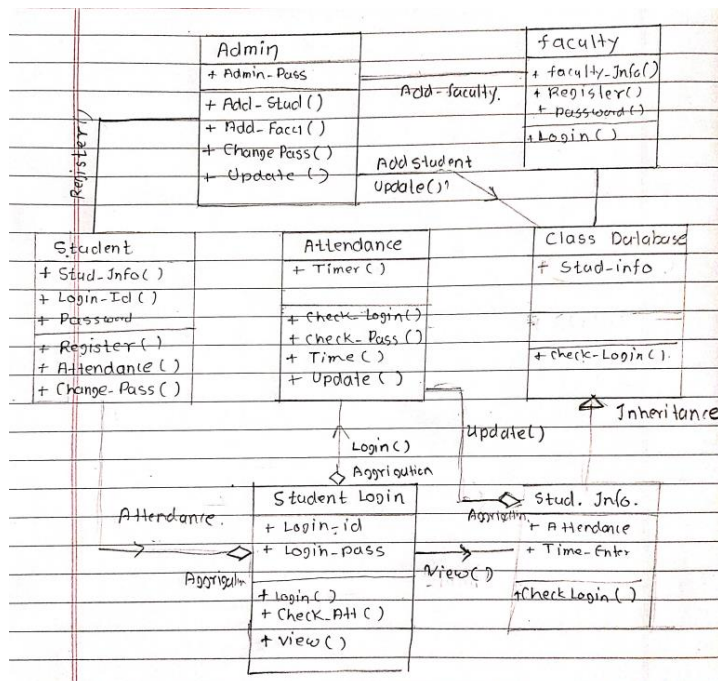 Admin
+ Admin-Pass
+ Add-Stud()
+ Add-Facct()
+ Change Pass()
+ Update ()
Add-faculty.
faculty
+ faculty-Info()
+ Register()
+ Password()
+ Login()
Register()
Add Student
Update()
Student
+ Stud-Info()
+ Login-Id()
+ Password
+ Register()
+ Attendance()
+ Change-Pass()
Attendance
+ Timer()
+ Check-Login()
+ Check-Pass()
+ Time()
+ Update()
Class Dalabase
+ Stud-info
+ Check-Login().
Inheritance
Login()
Aggrigution
Update()
Attendance.
Aggrigutin
Student Login
+ Login-id
+ Login-pass
+ Login()
+ Check_Att()
+ View()
View()
Aggrigutin.
Stud. Info.
+ Attendance
+ Time-Enter
+Check Login()